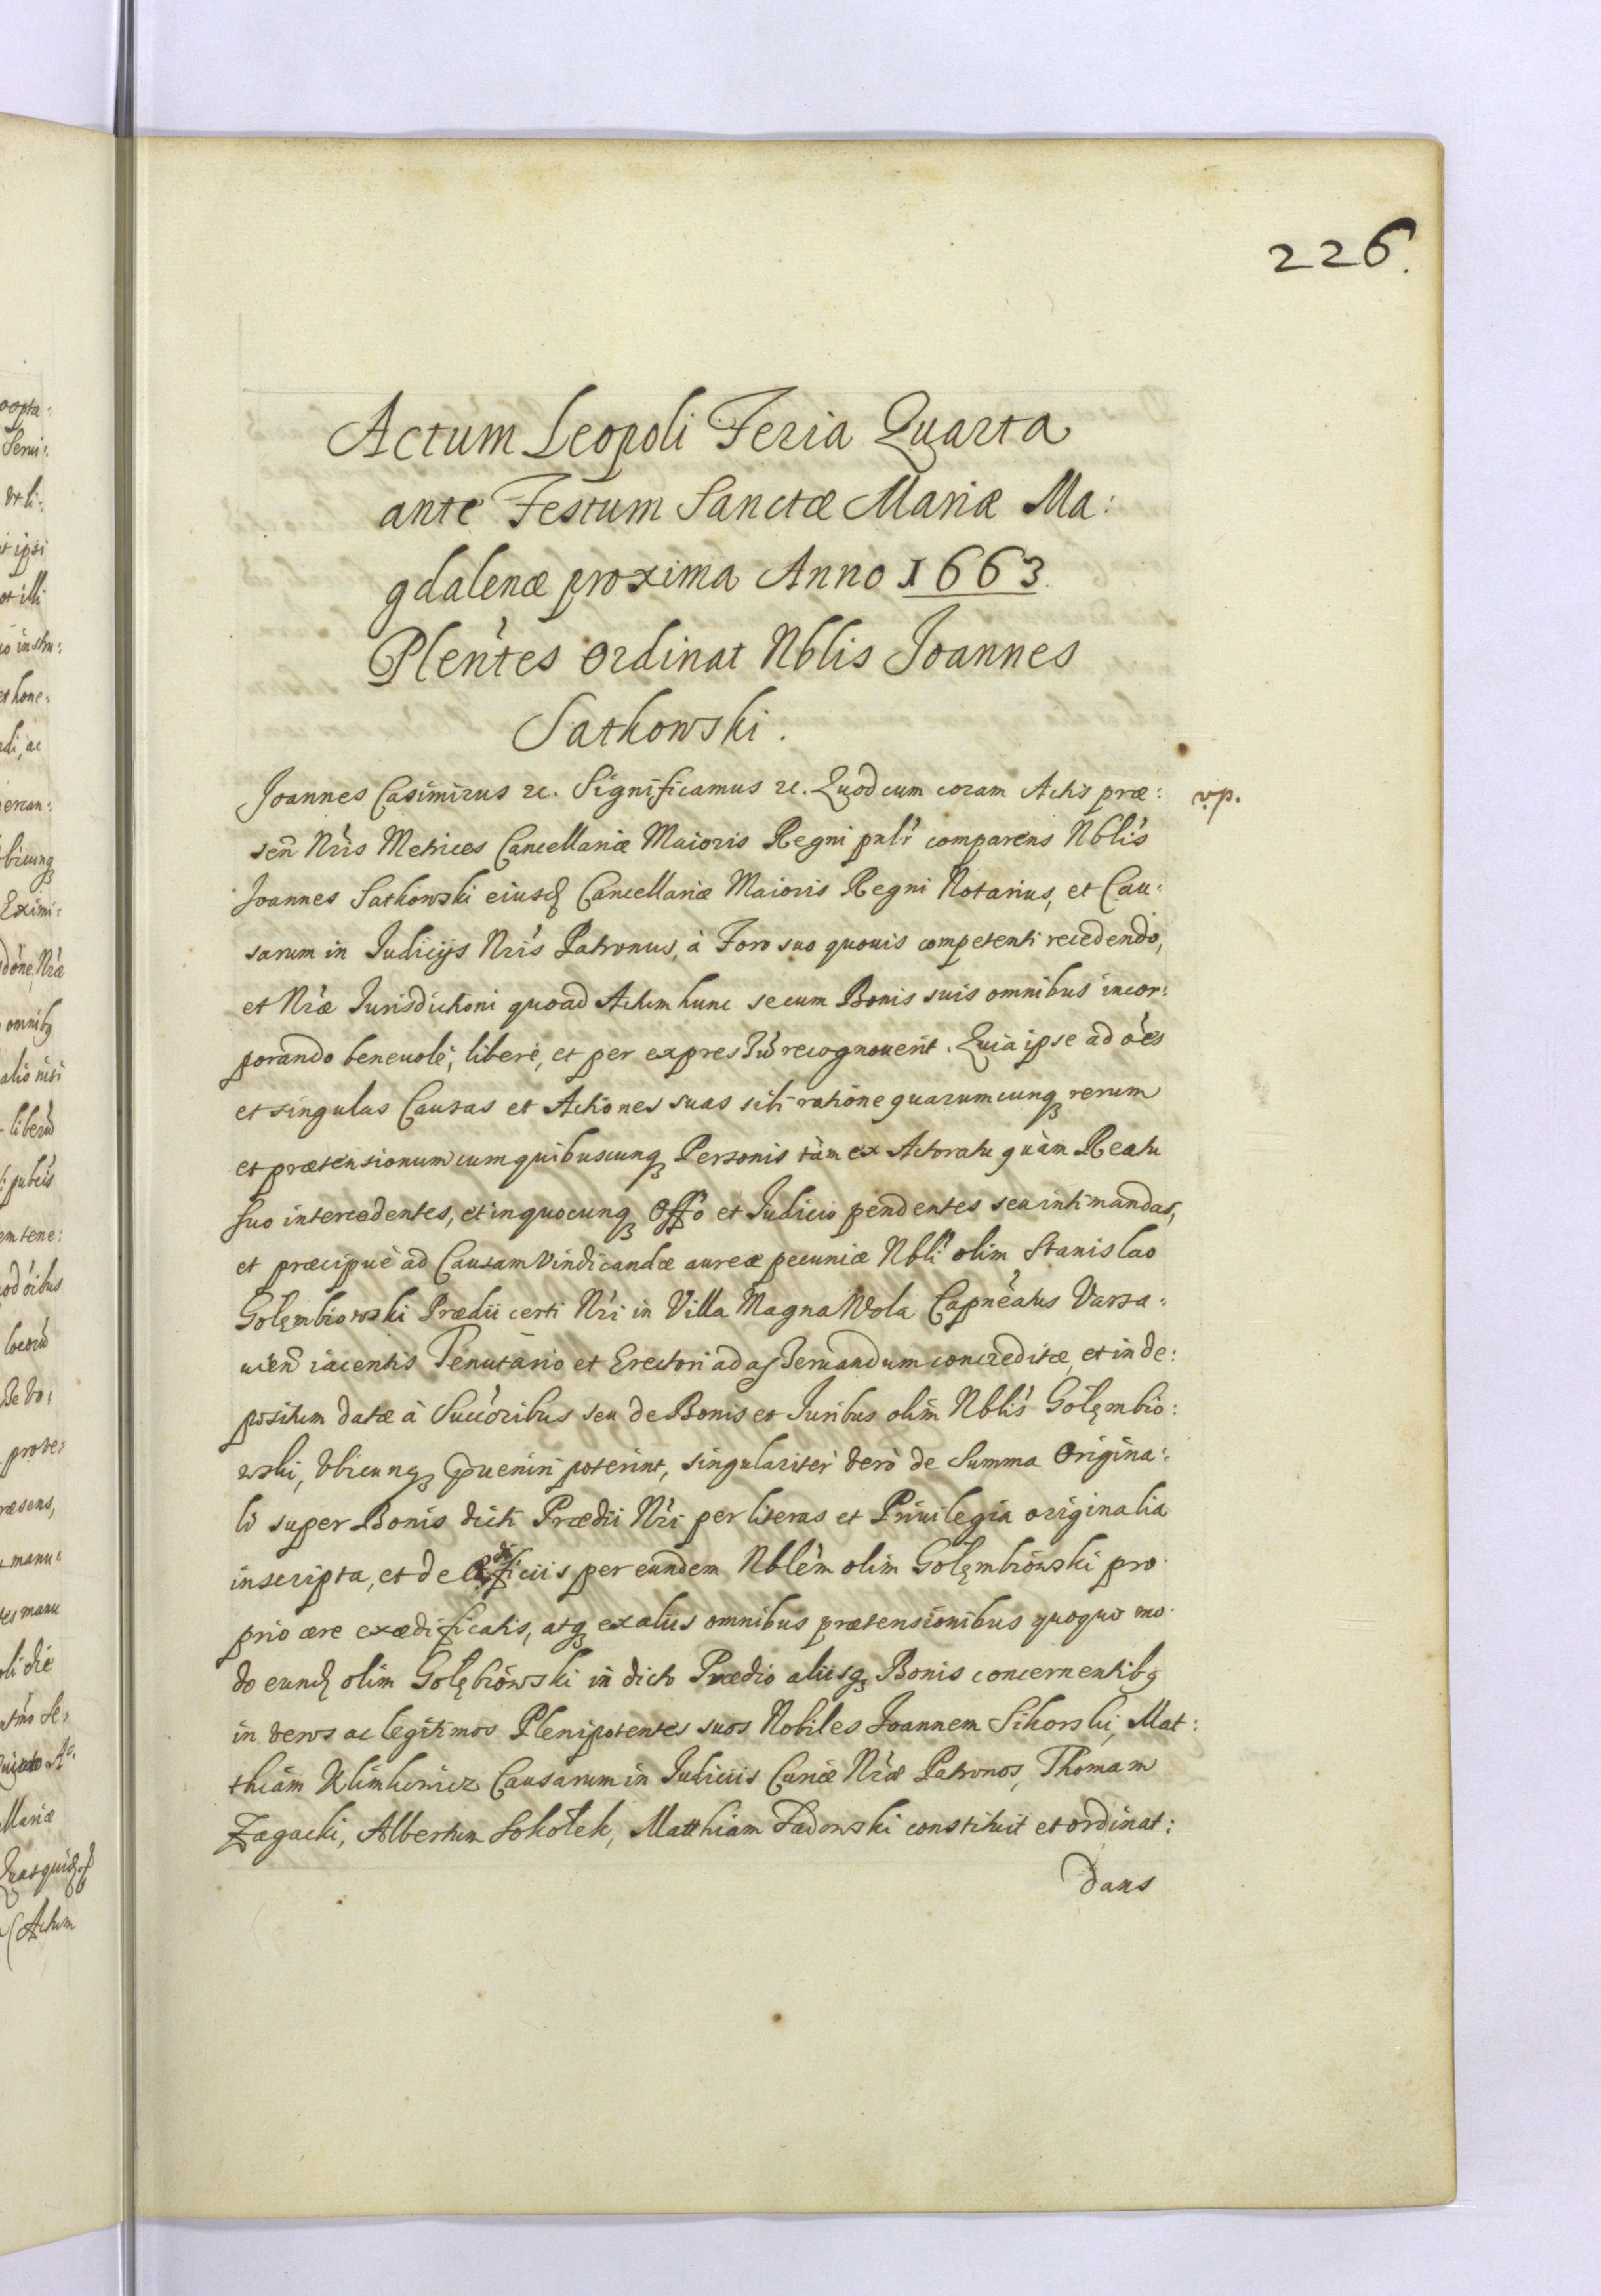 226.
Actum Leopoli Feria Quarta
ante Festum Sanctæ Mariæ Ma:
gdalenæ proxima Anno 1663.
Plen̄tes ordinat Nblis Joannes
Satkowski.
Joannes Casimirus &c. Significamus &c. Quod cum coram Actis præ:
sen̄ Nr̄is Metrices Cancellariæ Maioris Regni pnlr̄ comparens Nblis
Joannes Satkowski eiusd Cancellariæ Maioris Regni Notarius, et Cau:
sarum in Judicijs Nr̄is Patronus, à Foro suo quouis competenti recedendo,
et Nr̄æ Jurisdictioni quoad Actum hunc se cum Bonis suis omnibus incor:
porando beneuole, libere, et per expressū recognouerit. Quia ipse ad oēs
et singulas Causas et Actiones suas sibi ratione quarumcunq rerum
et prætensionum cum quibuscunq Personis tàm ex Actoratu quàm Reatu
suo intercedentes, et in quocunq Offō et Judicio pendentes seu intimandas,
et præcipuè ad Causam Vindicandæ aureæ pecuniæ Nbli olim Stanislao
Golęmbiowski Prædii certi Nr̄i in Villa Magna Wola Capnēatus Varsa:
uien̄ iacentis Tenutario et Erectori ad asseruandum concreditæ, et in de:
positum datæ à Succōribus seu de Bonis et Juribus olim Nblis Golęmbio:
wski, Vbicunq puenìri poterint, singulariter verò de Summa Origina:
li super Bonis dicti Prædii Nr̄i per literas et Priuilegia originalia
inscripta, et de Ædificiis per eundem Nblem olim Golęmbiowski pro
prio ære exædificatis, atq ex aliis omnibus prætensionibus quoquo mo
do eund olim Golębiowski in dicto Prædio aliisq Bonis concernentibq
in veros ac legitimos Plenipotentes suos Nobiles Joannem Sikorski, Mat:
thiam Klimkowicz Causarum in Judiciis Curiæ Nr̄æ Patronos, Thomam
Zagacki, Albertum Sokołek, Matthiam Sadowski constituit et ordinat:
dans
vp.